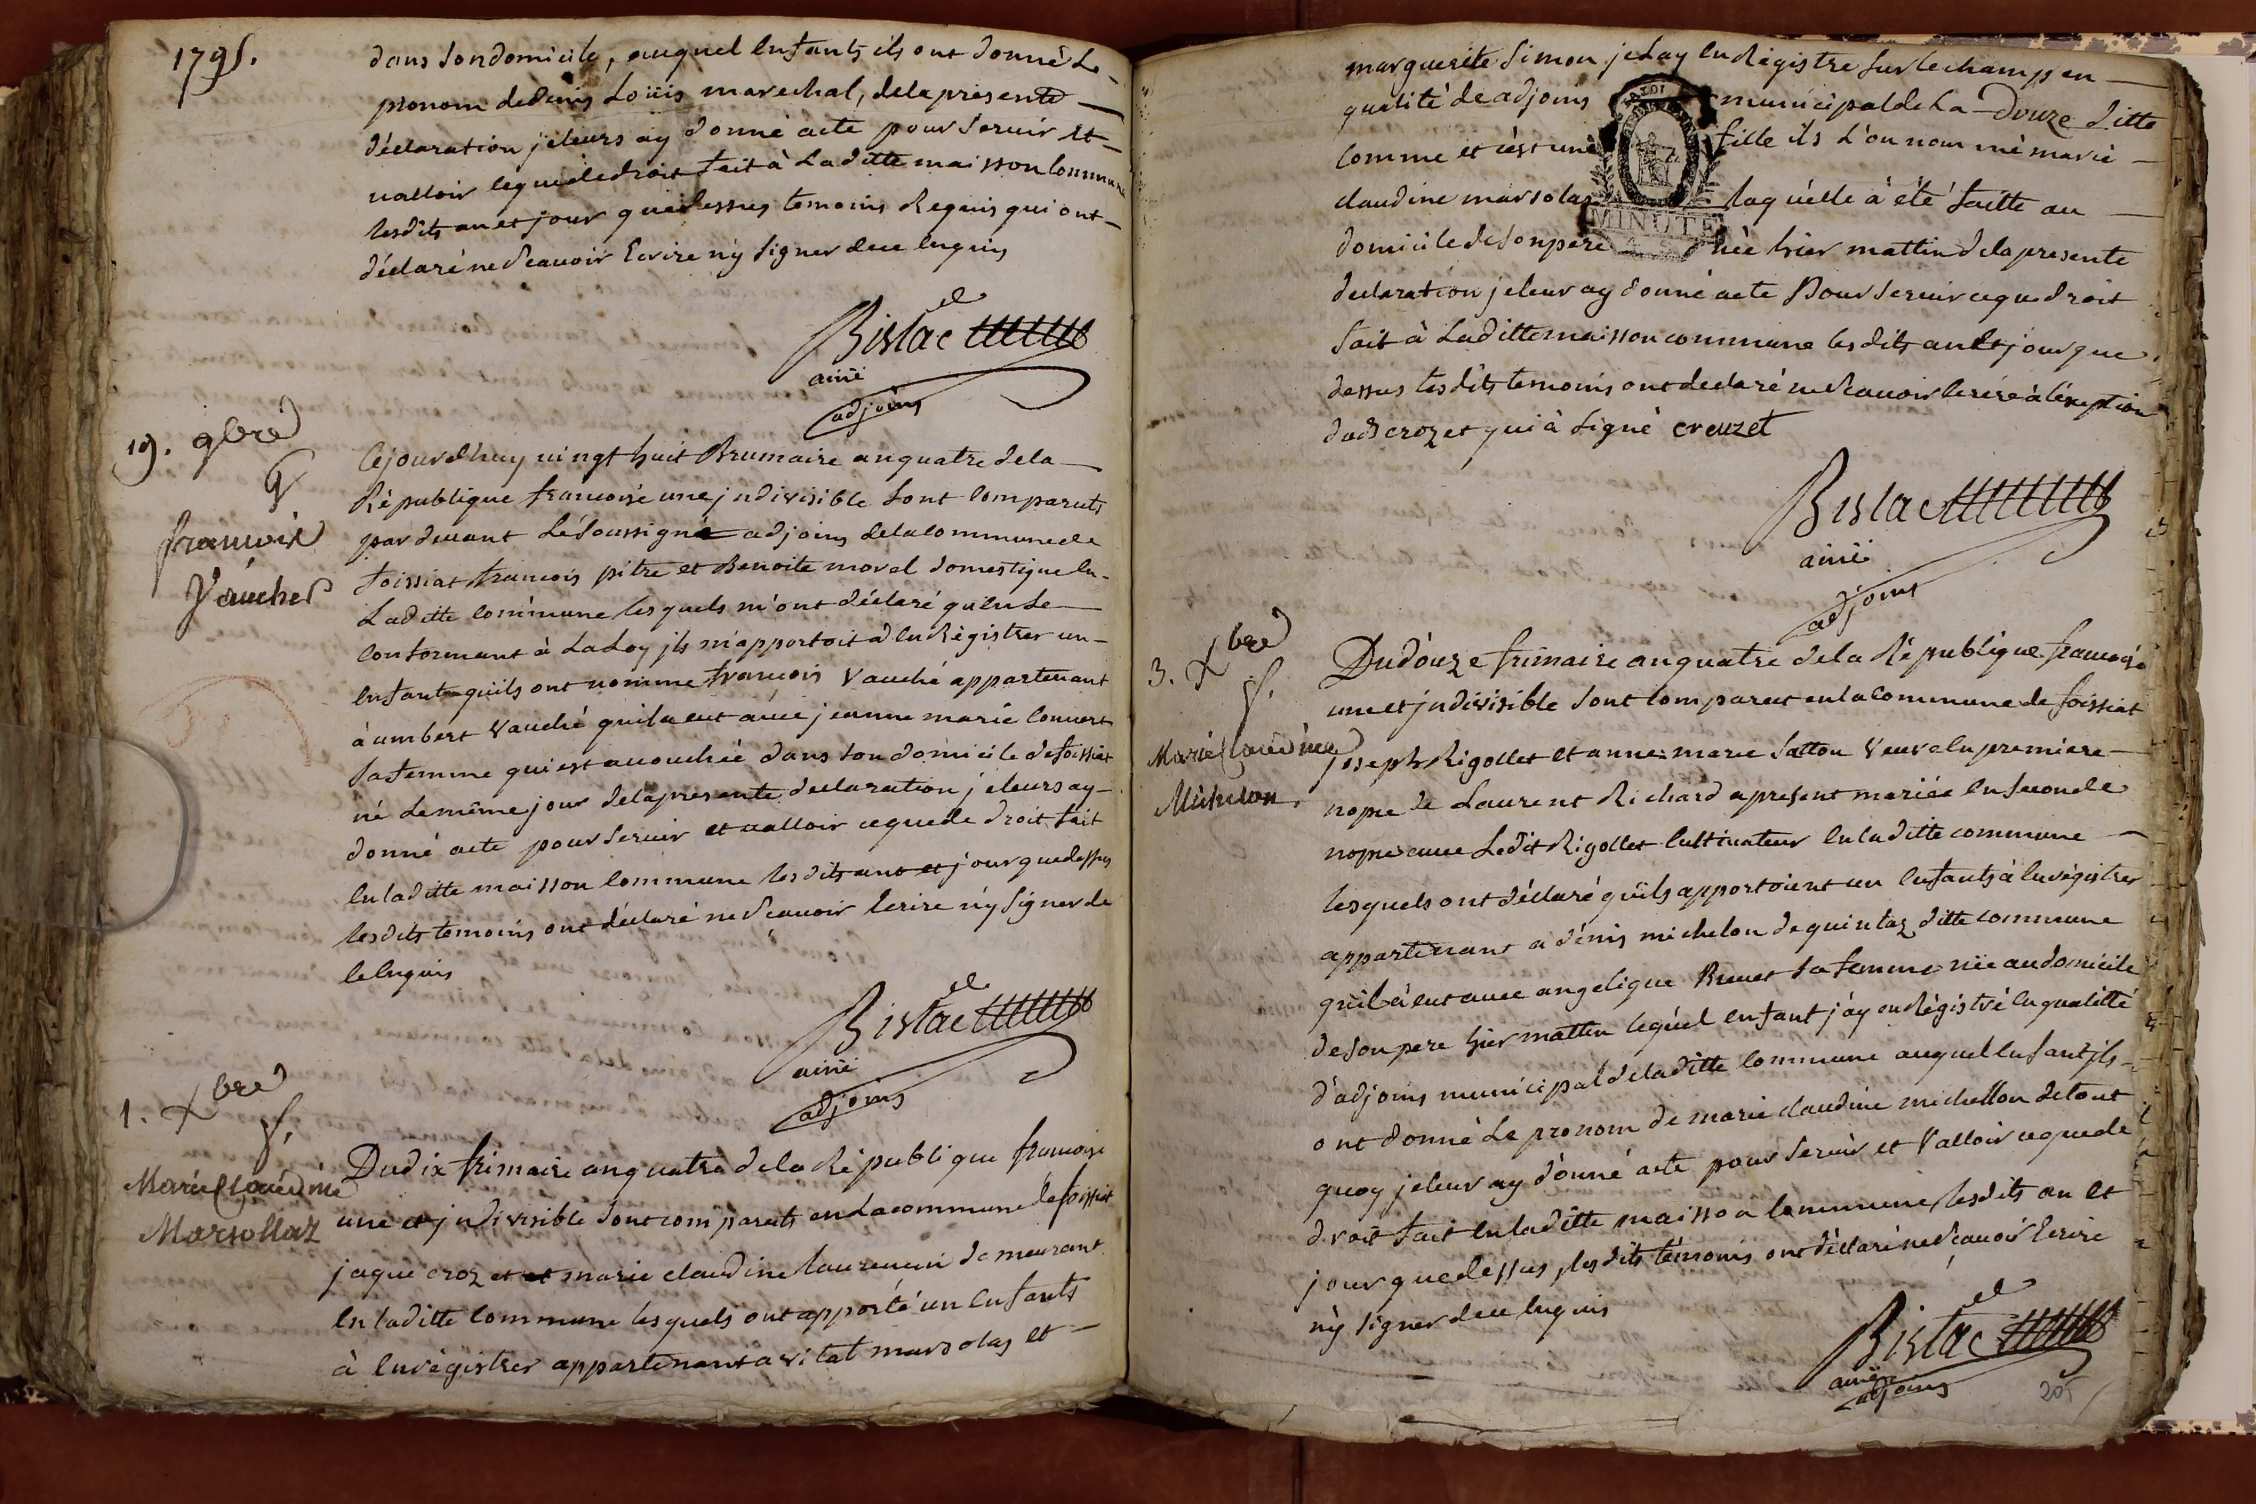 1795.
dans son domicile, auquel enfants ils ont donné Le
pronom de denis Loüis marechal, de la presente
déclaration je leurs ay donné acte pour servir et
valloir ce que de droit fait à Laditte maisson commune
lesdits an et jour que dessus temoins Requis qui ont
déclaré ne Scavoir Ecrire ny signer de ce enquis
Bislac
ainé
adjoins
19. 9bre
françois
Vaucher
Cejourd'huy vingt huit Brumaire an quatre de la
République françoise une jndivisible sont comparuts
par devant Le Soussigné adjoins de la commune de
foissiat françois pitre et Benoite morel domestique en
Laditte commune lesquels m'ont déclaré qu'en se
conformant à La Loy jls m'apportoit a enRegistrer un
enfant quils ont nomme françois Vauché appartenant
à umbert Vauché quil a eut avec jeanne marie Convert
sa femme qui est accouchée dans son domicile de foissiat
né Le même jour de la presente declaration je leurs ay
donné acte pour servir et valloir ce que de droit fait
en laditte maisson commune les dits ans et jour que dessus
lesdits temoins ont déclaré ne Scavoir Ecrire ny signer de
ce enquis
Bislac
ainé
adjoins
1. Xbre
Marie Claudine
Marsollaz
Du dix frimaire an quatre de la République françoise
une et jndivisible sont comparuts en La commune de foissiat
jaque crozet et marie claudine laurencin demeurant
en laditte commune lesquels ont apporté un enfants
à enregistrer appartenant a vital marsolas et
marguerite Simon je Lay enRegistre sur le champs en
qualité de adjoins municipal de La Douze ditte
comme et c'est une fille ils L'on nommé marie
claudine marsolas laquelle à été faitte au
MINUTE
domicile de son pere née hier mattin de la presente
declaration je leur ay donné acte Pour servir ce que droit
fait à Laditte maisson commune les dits an et jour que
dessus lesdits temoins ont declaré ne Scavoir ecrire à l'éxeption
dud crozet qui à signé creuzet
Bislac
ainé
adjoins
3. Xbre
Marie Claudine
Michelon.
Du douze frimaire an quatre de la République françoise
une et jndivisible sont comparut en la commune de foissiat
joseph Rigollet et anne marie Sallon veuve en premiere
nopse de Laurent Richard apresent mariée en seconde
nopse avec Ledit Rigollet cultivateur en laditte commune
lesquels ont déclaré qu'ils apportoient un enfants à enregistrer
appartenant a dénis michelon de quintaz ditte commune
qu'il à eut avec angelique Brevet sa femme née au domicile
de son pere hier mattin lequel enfant j'ay enRégistré en qualitté
d'adjoins municipal de laditte commune auquel enfant jls
ont donné Le pronom de marie claudine michellon de tout
quoy je leur ay donné acte pour servir et Valloir ce que de
droit fait en laditte maisson commune, lesdits an et
jour que dessus, lesdits témoins ont déclaré ne Scavoir Ecrire
ny signer de ce enquis
Bislac
ainé
adjoins
205